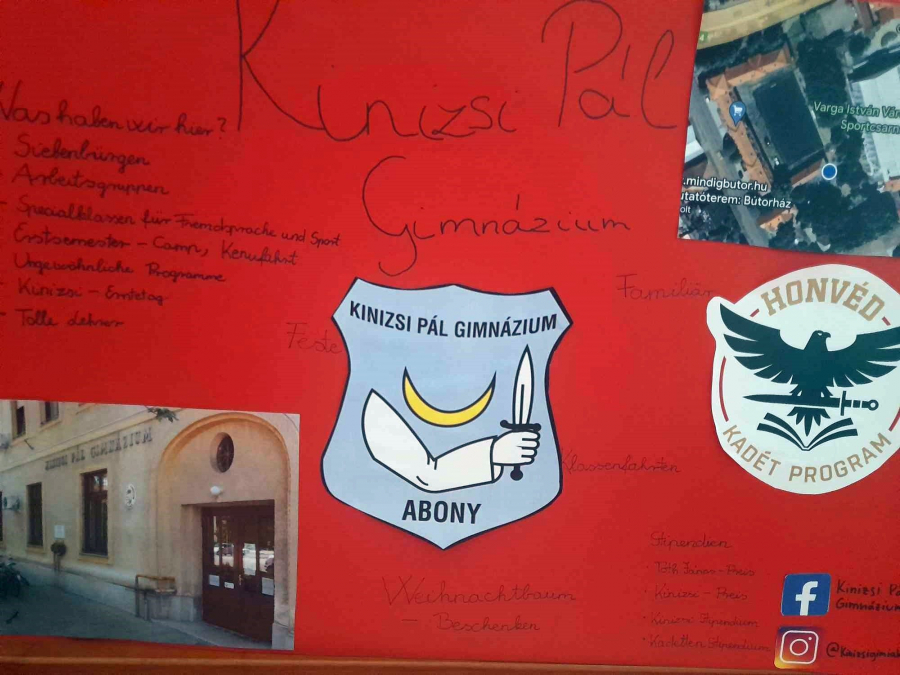 Kinizsi Pál
Gimnázium
Was haben wir hier?
Siebenbürgen
- Arbeitsgruppen
- Specialklassen für Fremdsprache und Sport
Erstsemester - Camp,
- Ungewöhnliche Programme
- Kinizsi - Erntetag
- Tolle Lehrer
Varga István Vár
Sportcsarn
.mindigbutor.hu
utatóterem: Bútorház
olt
Feste
Familiär
KINIZSI PÁL GIMNÁZIUM
ABONY
- HONVÉD -
KADÉT PROGRAM
KINIZSI PÁL GIMNÁZIUM
Klassenfahrten
Weihnachtbaum
- Beschenken
Stipendien
• Tóth János - Preis
• Kinizsi - Preis
• Kinizsi Stipendium
• Kadetten Stipendium
f
Kinizsi Pá
Gimnázium